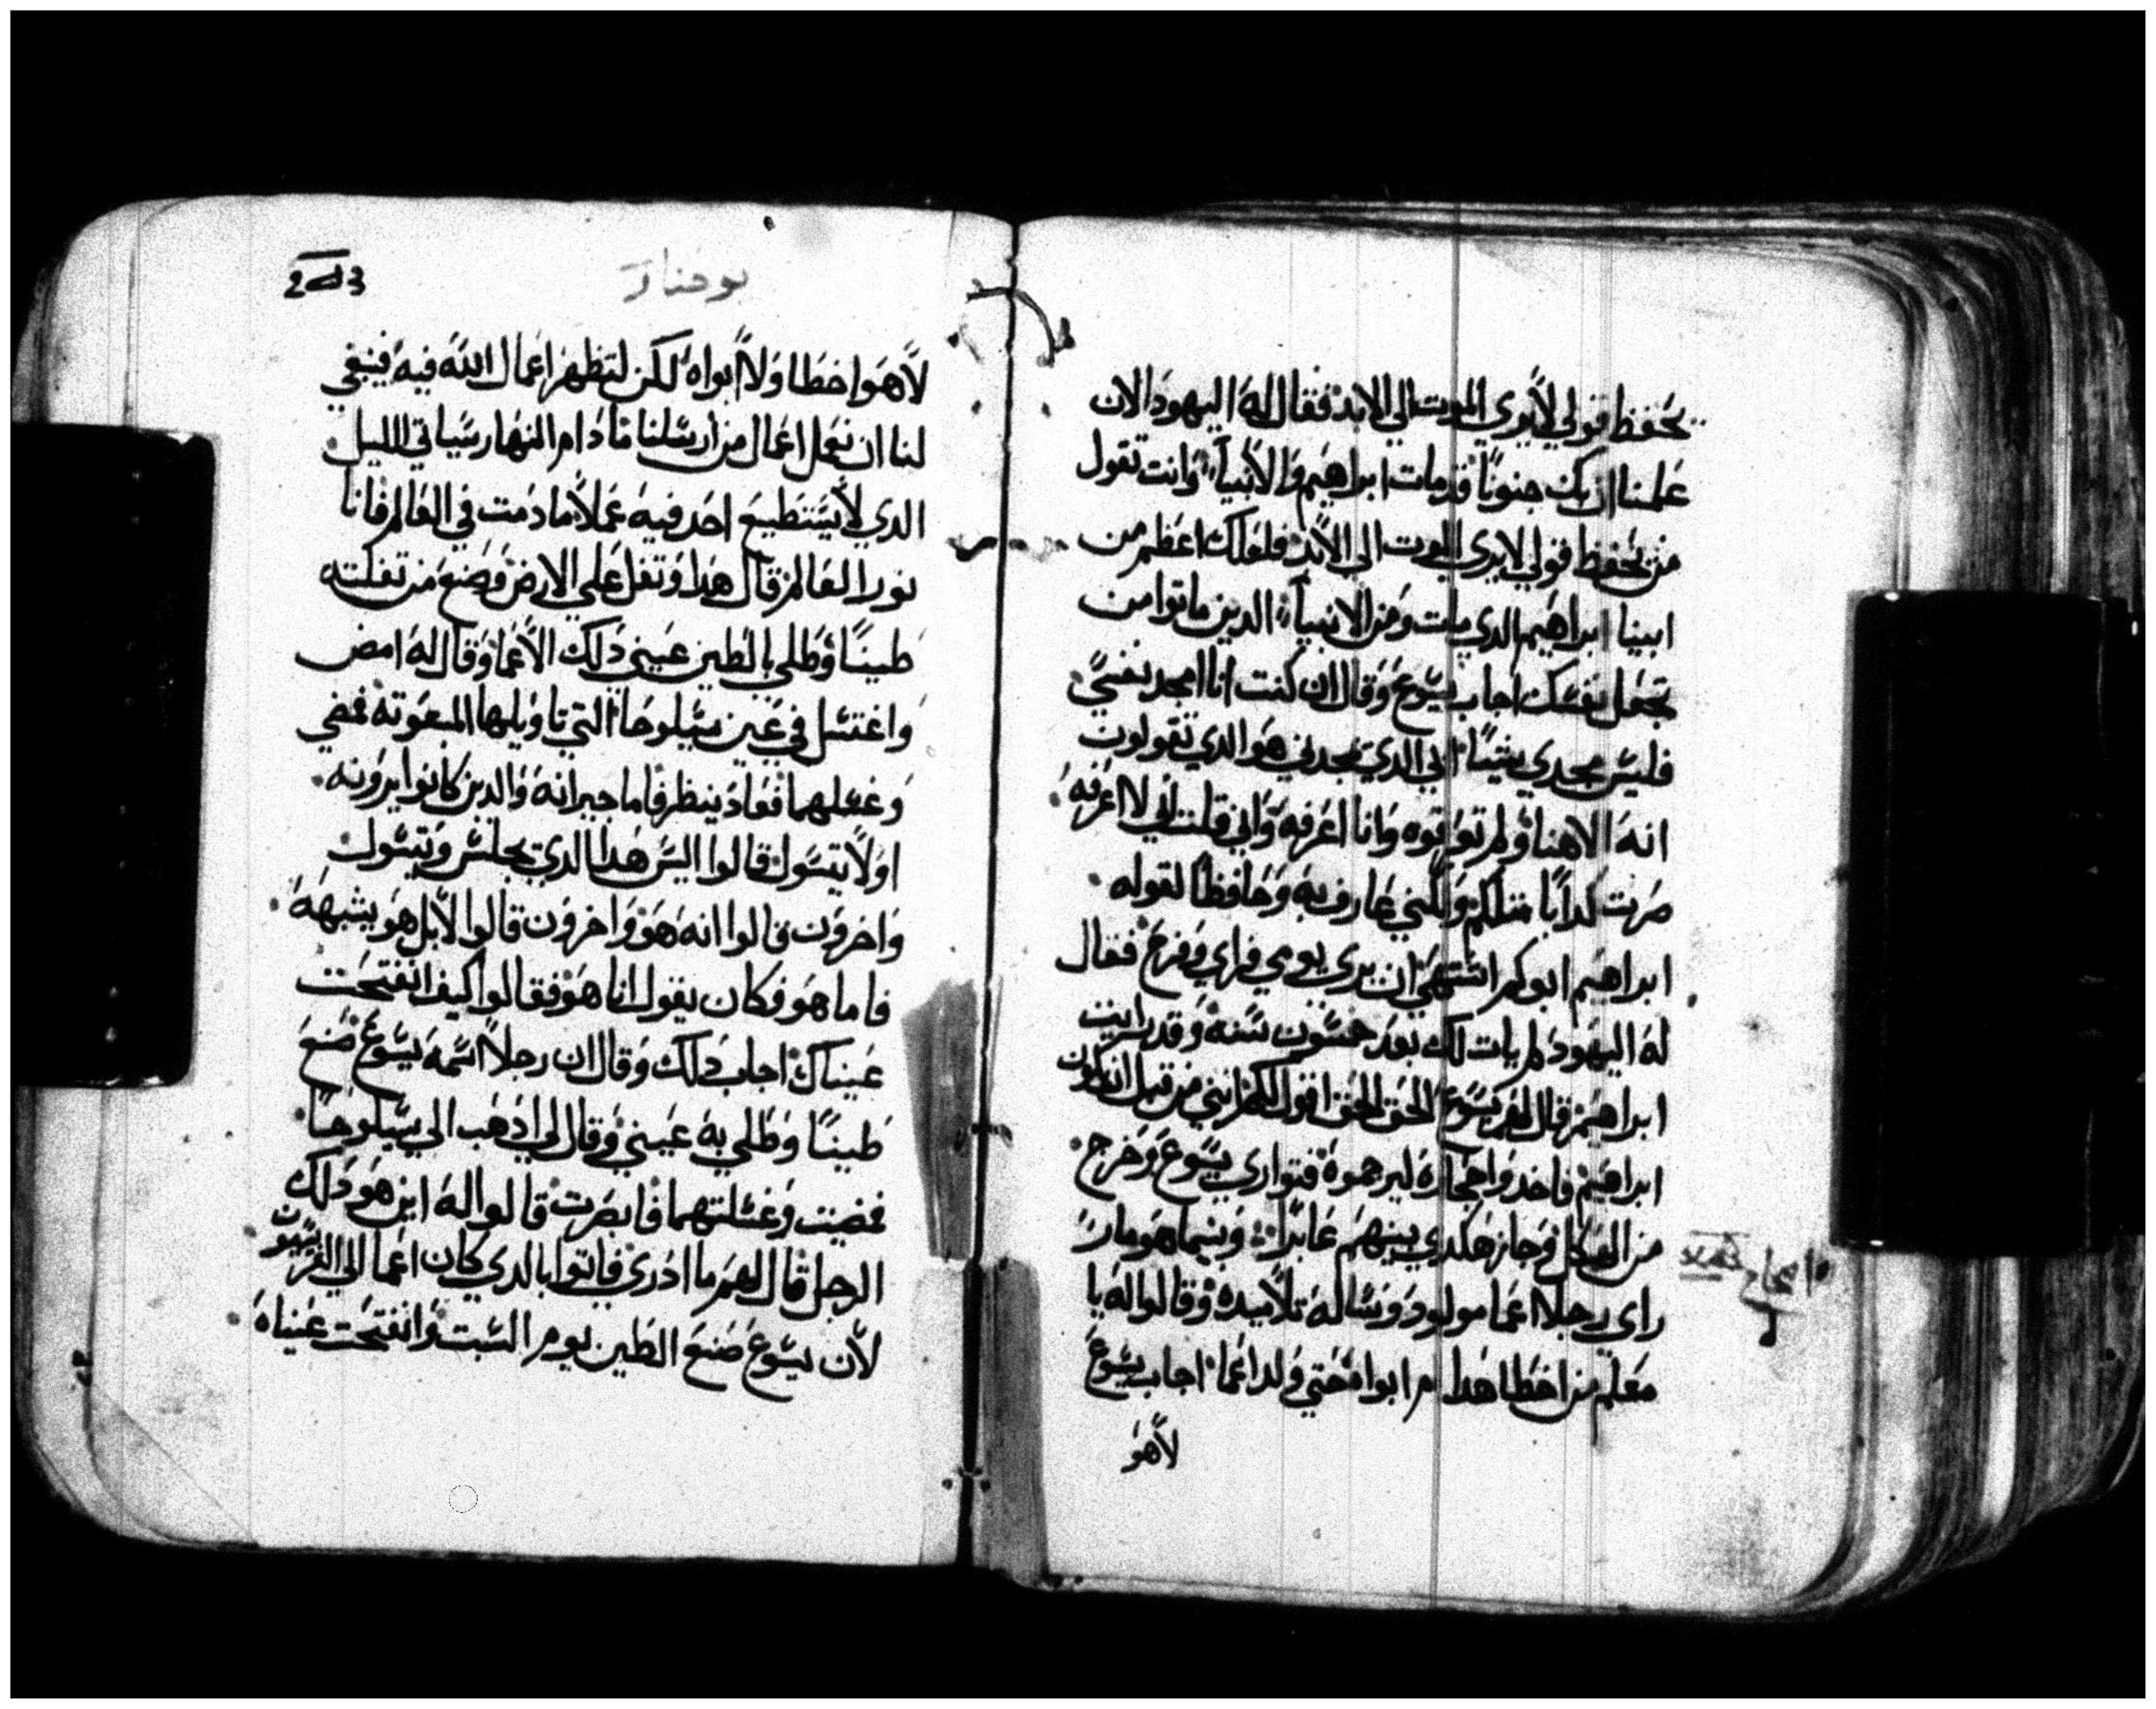 يحفظ قولي لا يري الموت الي الابد فقال له اليهود الان
علمنا ان بك جنونًا قد مات ابراهيم والانبيآء وانت تقول
من يحفظ قولي لا يري الموت الي الابد فلعلك اعظم من
ابينا ابراهيم الدي مات ومن الانبيآء الدين ماتوا من
تجعل نفسك اجاب يسوع وقال ان كنت انا امجد نفسي
فليس مجدي شيئًا ابي الدي يمجدني هو الدي تقولون
انه الاهنا ولم تعرفوه وانا اعرفه واني قلت اني لا اعرفه
صرت كدابًا مثلكم ولكني عارف به وحافظًا لقوله
ابراهيم ابوكم اشتهي ان يري يومي فراي وفرح فقال
له اليهود لم يات لك بعد خمسون سنه وقد رايت
ابراهيم قال لهم يسوع الحق الحق اقول لكم انني من قبل ان يكون
ابراهيم فاخدوا حجاره ليرجموه فتواري يسوع وخرج
من الهيكل وجاز هكدي بينهم عابرًا وبينما هو مار
راي رجلا اعما مولود وساله تلاميده وقالوا له يا
معلم من اخطا هدا ام ابواه حتي ولد اعما اجاب يسوع
لا هو
يوحنا
لا هو اخطا ولا ابواه لكن لتظهر اعمال الله فيه ينبغي
لنا ان نعمل اعمال من ارسلنا ما دام النهار سياتي الليل
الدي لا يستطيع احد فيه عملا ما دمت في العالم فانا
نور العالم قال هدا وتفل علي الارض وصنع من تفلته
طينًا وطلي بالطين عيني دلك الاعما وقال له امض
واغتسل في عين سيلوحا التي تاويلها المبعوته فمضي
وغسلهما فعاد ينظر فاما جيرانه والدين كانوا يرونه
اولا يتسول قالوا اليس هدا الدي يجلس ويتسول
واخرون قالوا انه هو واخرون قالوا لا بل هو يشبهه
فاما هو فكان يقول انا هو فقالوا كيف انفتحت
عيناك اجاب دلك وقال ان رجلا اسمه يسوع صنع
طينًا وطلي به عيني وقال لي ادهب الي سيلوحا
فمضيت وغسلتهما فابصرت قالوا له اين هو دلك
الرجل قال لهم ما ادري فاتوا بالدي كان اعما الي الفريسيون
لان يسوع صنع الطين يوم السبت وانفتحت عيناه